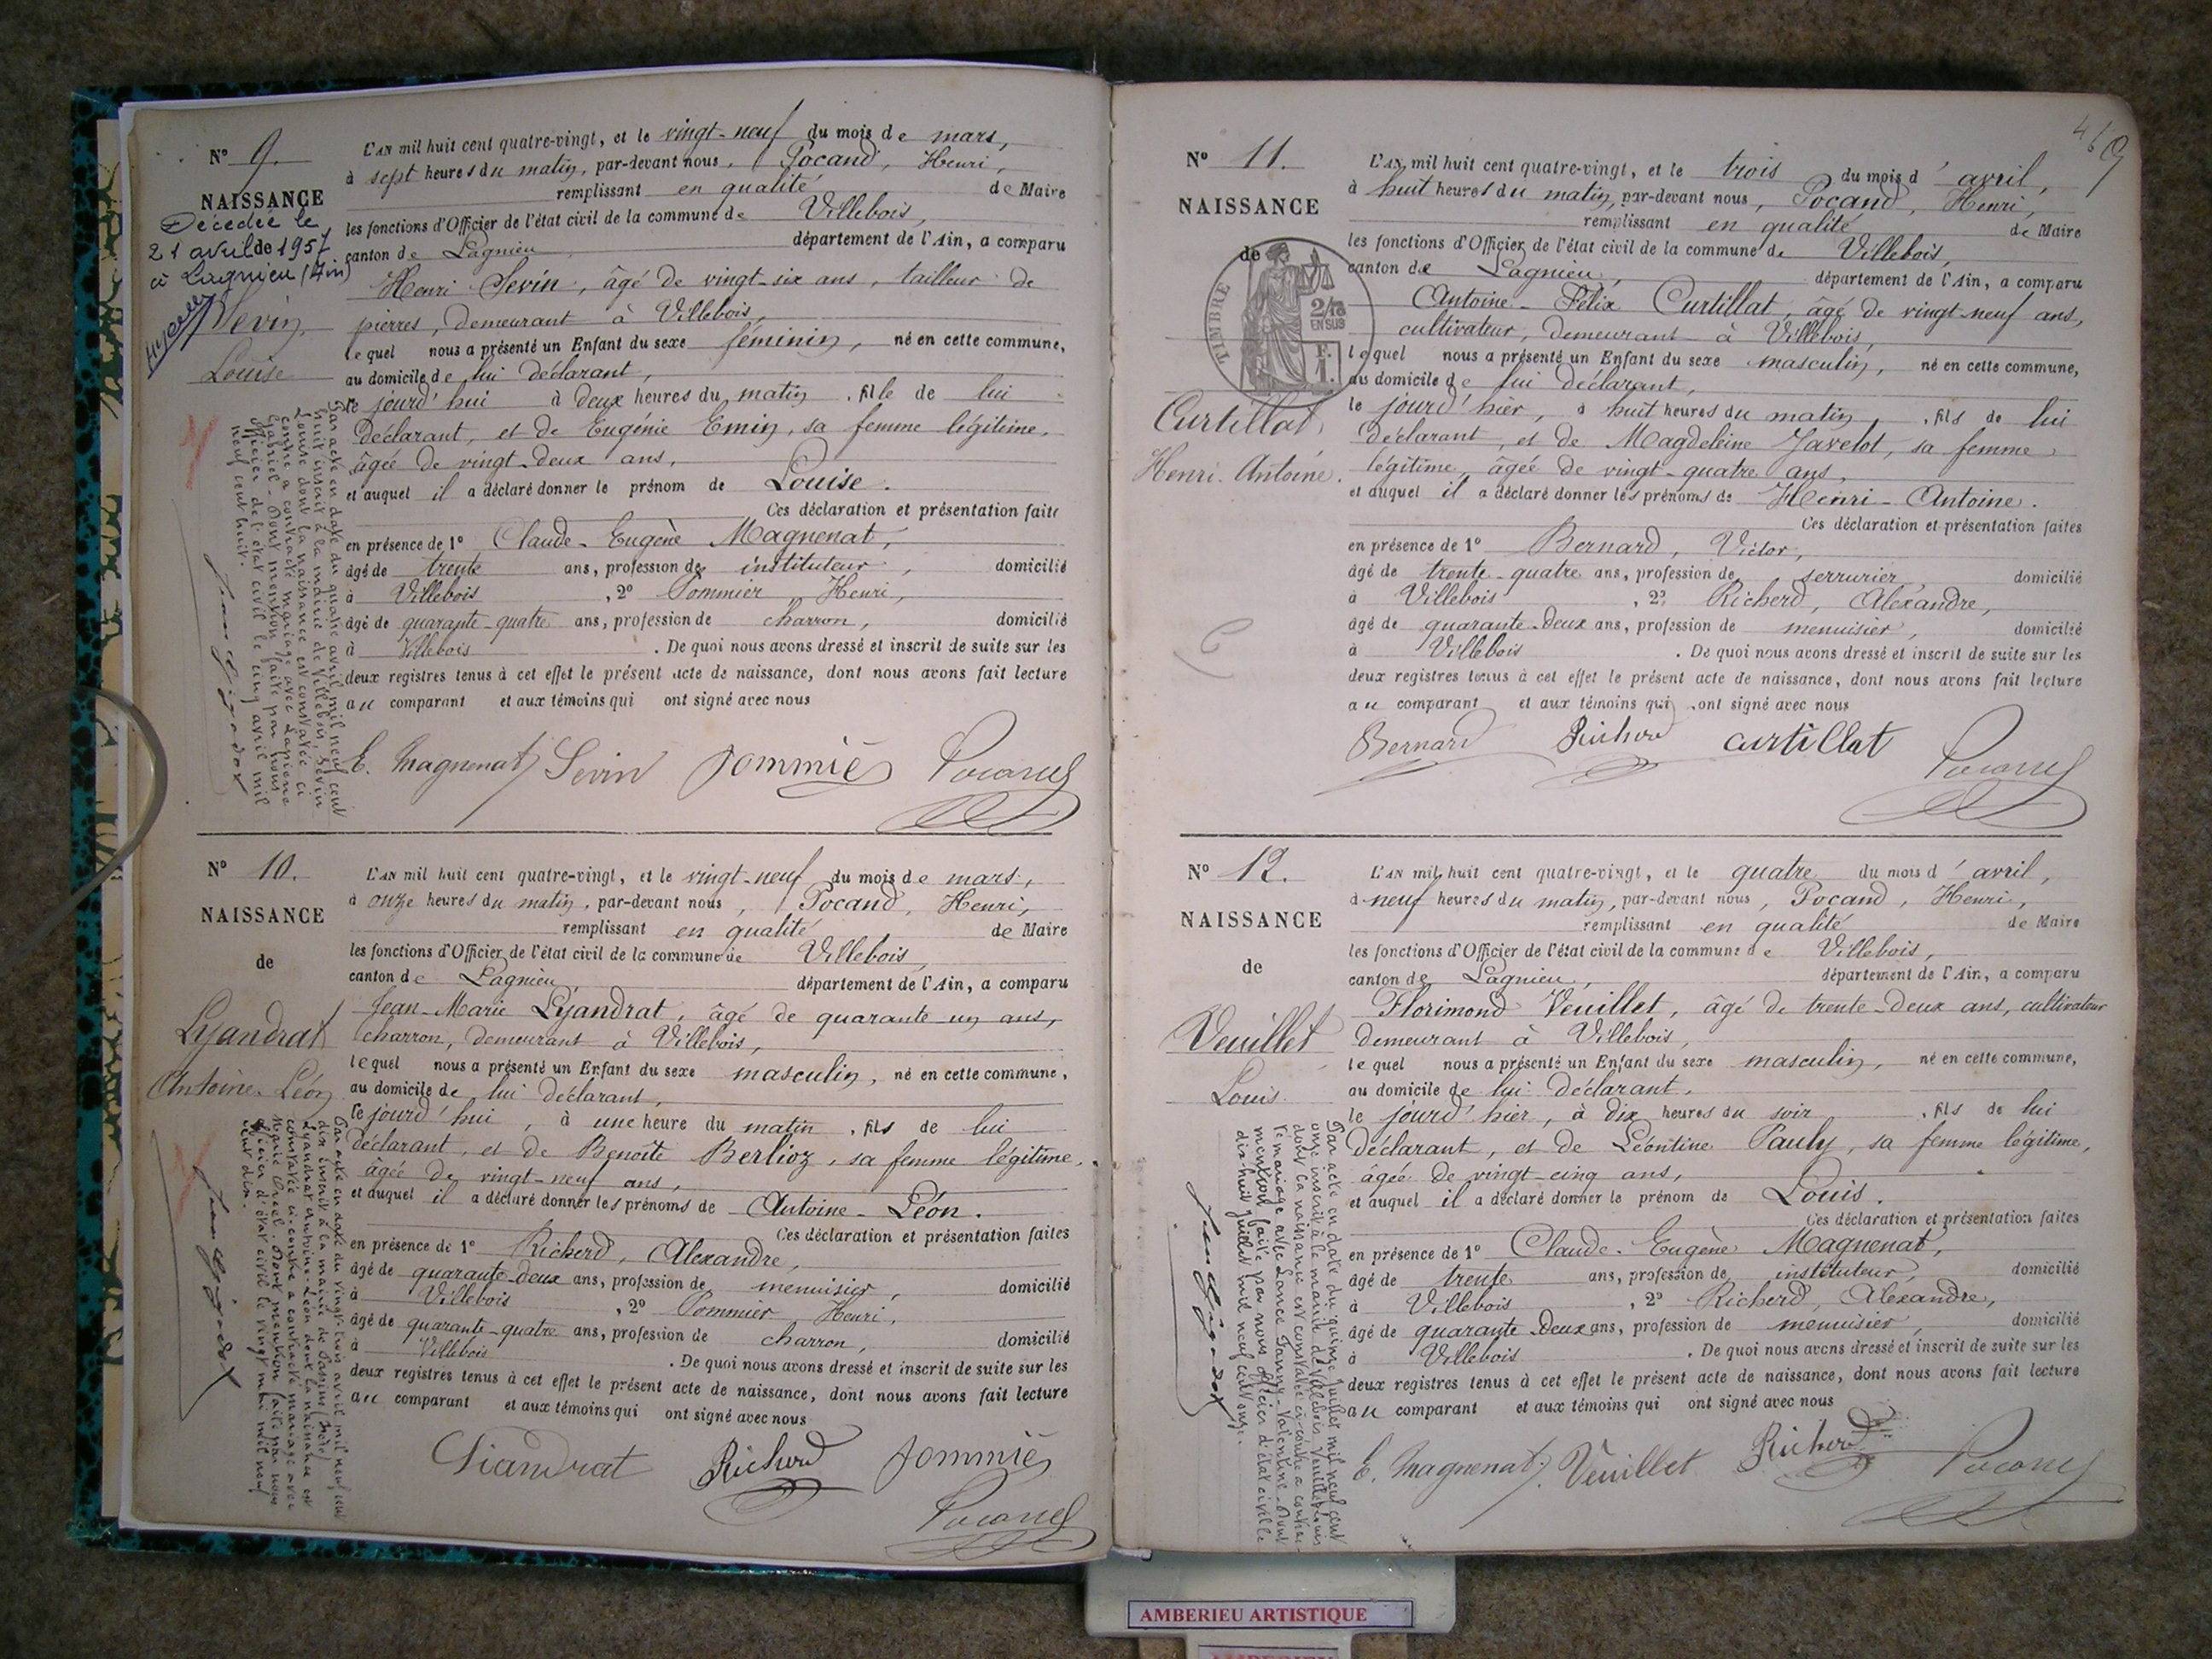 N° 9.
NAISSANCE
de
Décédée le
21 avril 1957
à Lagnieu (Ain)
Sevin
Louise
L'AN mil huit cent quatre-vingt, et le vingt-neuf du mois de mars,
à sept heures du matin, par-devant nous, Pocand, Henri,
remplissant en qualité de Maire
les fonctions d'Officier de l'état civil de la commune de Villebois,
canton de Lagnieu département de l'Ain, a comparu
Henri Sevin, âgé de vingt-six ans, tailleur de
pierres, demeurant à Villebois,
lequel nous a présenté un Enfant du sexe féminin, né en cette commune,
au domicile de lui déclarant,
le jourd'hui à deux heures du matin, fille de lui
déclarant, et de Eugénie Emin, sa femme légitime,
âgée de vingt-deux ans,
et auquel il a déclaré donner le prénom de Louise.
Ces déclaration et présentation faite
en présence de 1° Claude-Eugène Magnenat,
âgé de trente ans, profession de instituteur, domicilié
à Villebois, 2° Pommier, Henri,
âgé de quarante-quatre ans, profession de charron, domicilié
à Villebois. De quoi nous avons dressé et inscrit de suite sur les
deux registres tenus à cet effet le présent acte de naissance, dont nous avons fait lecture
au comparant et aux témoins qui ont signé avec nous
E. Magnenat Sevin Pommié Pocand
Par acte en date du quatre avril mil neuf cent
huit inscrit à la mairie de Villebois, Sevin
Louise dont la naissance est constatée ci
contre a contracté mariage avec Lapierre
Gabriel. Dont mention faite par nous
officier de l'état civil le cinq avril mil
neuf cent huit.
N° 10.
NAISSANCE
de
Lyandrat
Antoine-Léon
L'AN mil huit cent quatre-vingt, et le vingt-neuf du mois de mars,
à onze heures du matin, par-devant nous, Pocand, Henri,
remplissant en qualité de Maire
les fonctions d'Officier de l'état civil de la commune de Villebois,
canton de Lagnieu, département de l'Ain, a comparu
Jean-Marie Lyandrat, âgé de quarante un ans,
charron, demeurant à Villebois,
lequel nous a présenté un Enfant du sexe masculin, né en cette commune,
au domicile de lui déclarant,
le jourd'hui, à une heure du matin, fils de lui
déclarant, et de Benoîte Berlioz, sa femme légitime,
âgée de vingt-neuf ans,
et auquel il a déclaré donner les prénoms de Antoine-Léon.
Ces déclaration et présentation faites
en présence de 1° Richerd, Alexandre,
âgé de quarante-deux ans, profession de menuisier, domicilié
à Villebois, 2° Pommier Henri,
âgé de quarante-quatre ans, profession de charron, domicilié
à Villebois. De quoi nous avons dressé et inscrit de suite sur les
deux registres tenus à cet effet le présent acte de naissance, dont nous avons fait lecture
au comparant et aux témoins qui ont signé avec nous
Liandrat Richerd Pommié
Pocand
Par acte en date du vingt-trois avril mil neuf cent
dix inscrit à la mairie de Passins (Isère)
Lyandrat Antoine-Léon dont la naissance est
constatée ci-contre a contracté mariage avec
Marie. Dont mention faite par nous
officier d'état civil le vingt mai mil neuf
cent dix.
N° 11.
NAISSANCE
de
TIMBRE
2/10
EN SUS
F.
1.
Curtillat
Henri-Antoine.
L'AN mil huit cent quatre-vingt, et le trois du mois d'avril,
à huit heures du matin, par-devant nous, Pocand, Henri,
remplissant en qualité de Maire
les fonctions d'Officier de l'état civil de la commune de Villebois,
canton de Lagnieu, département de l'Ain, a comparu
Antoine-Félix Curtillat, âgé de vingt-neuf ans,
cultivateur, demeurant à Villebois,
lequel nous a présenté un Enfant du sexe masculin, né en cette commune,
au domicile de lui déclarant,
le jourd'hier, à huit heures du matin, fils de lui
déclarant, et de Magdeleine Javelot, sa femme
légitime, âgée de vingt-quatre ans,
et auquel il a déclaré donner les prénoms de Henri-Antoine.
Ces déclaration et présentation faites
en présence de 1° Bernard, Victor,
âgé de trente-quatre ans, profession de serrurier, domicilié
à Villebois, 2° Richerd, Alexandre,
âgé de quarante-deux ans, profession de menuisier, domicilié
à Villebois. De quoi nous avons dressé et inscrit de suite sur les
deux registres tenus à cet effet le présent acte de naissance, dont nous avons fait lecture
au comparant et aux témoins qui ont signé avec nous
Bernard Richerd Curtillat Pocand
N° 12.
NAISSANCE
de
Veuillet
Louis.
L'AN mil huit cent quatre-vingt, et le quatre du mois d'avril,
à neuf heures du matin, par-devant nous, Pocand, Henri,
remplissant en qualité de Maire
les fonctions d'Officier de l'état civil de la commune de Villebois,
canton de Lagnieu, département de l'Ain, a comparu
Florimond Veuillet, âgé de trente-deux ans, cultivateur
demeurant à Villebois,
lequel nous a présenté un Enfant du sexe masculin, né en cette commune,
au domicile de lui déclarant,
le jourd'hier, à dix heures du soir, fils de lui
déclarant, et de Léontine Pauly, sa femme légitime,
âgée de vingt-cinq ans,
et auquel il a déclaré donner le prénom de Louis.
Ces déclaration et présentation faites
en présence de 1° Claude-Eugène Magnenat,
âgé de trente ans, profession de instituteur, domicilié
à Villebois, 2° Richerd, Alexandre,
âgé de quarante-deux ans, profession de menuisier, domicilié
à Villebois. De quoi nous avons dressé et inscrit de suite sur les
deux registres tenus à cet effet le présent acte de naissance, dont nous avons fait lecture
au comparant et aux témoins qui ont signé avec nous
E. Magnenat Veuillet Richerd Pocand
Par acte en date du quinze juillet mil neuf cent
onze inscrit à la mairie de Villebois, Veuillet Louis
dont la naissance est constatée ci-contre a contracté
mariage avec Lance Fanny-Valentine. Dont
mention faite par nous officier d'état civil le
dix-huit juillet mil neuf cent onze.
AMBERIEU ARTISTIQUE
AMBERIEU